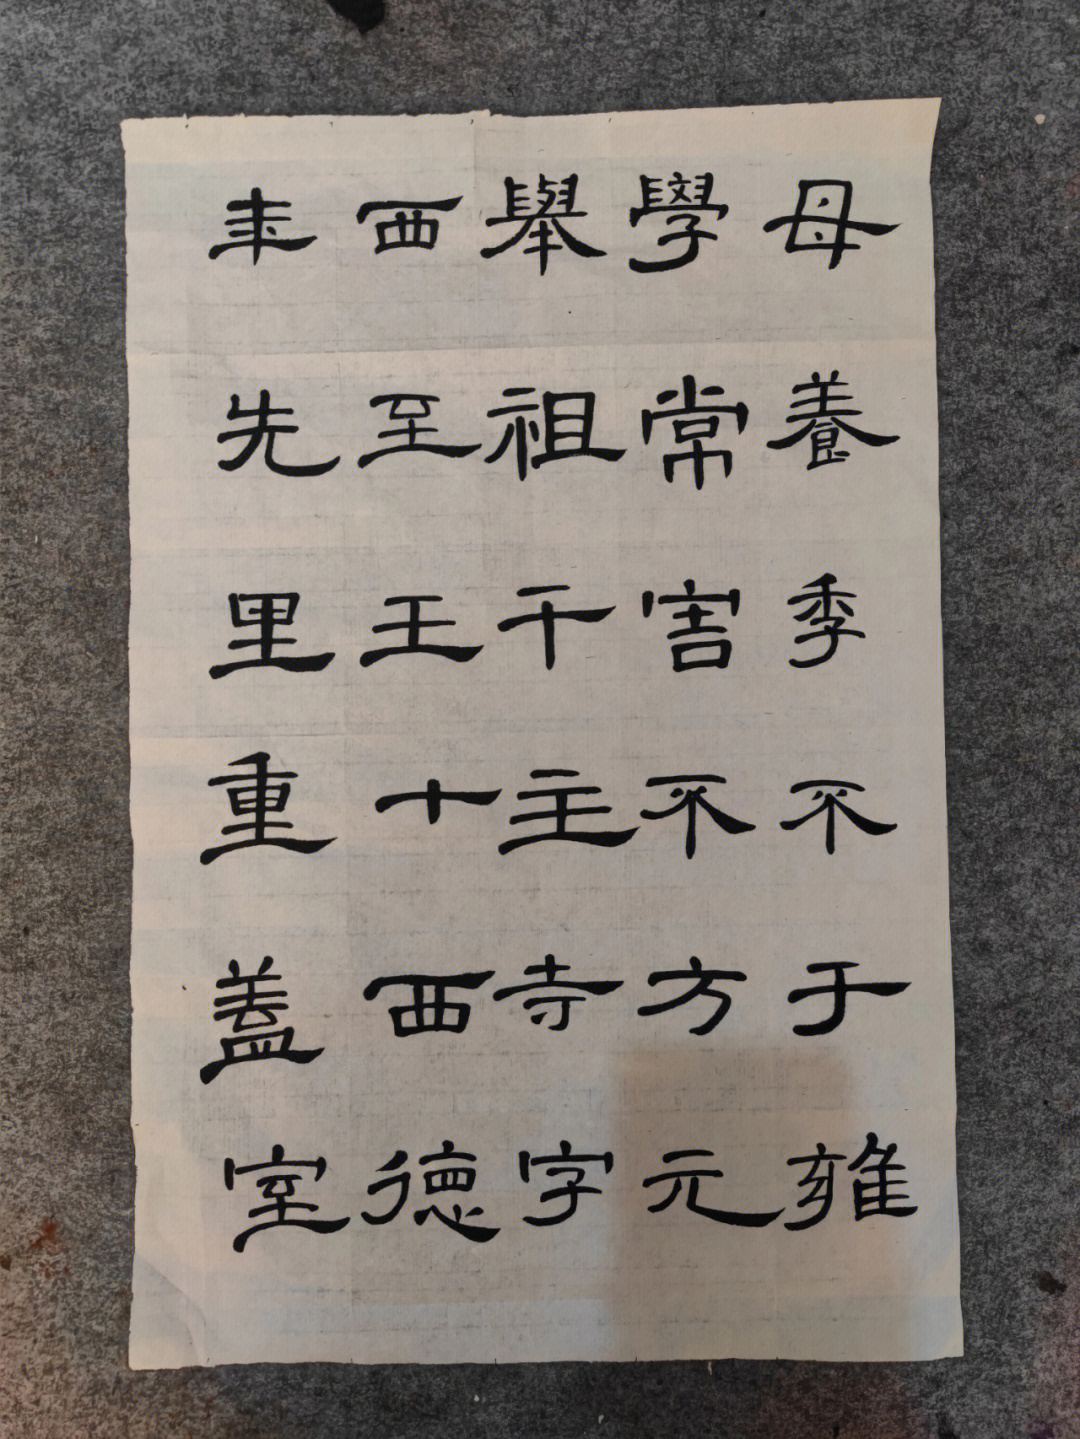 母養季不于雍
學常害不方元
舉祖干主寺字
西至王十西德
先里重蓋室